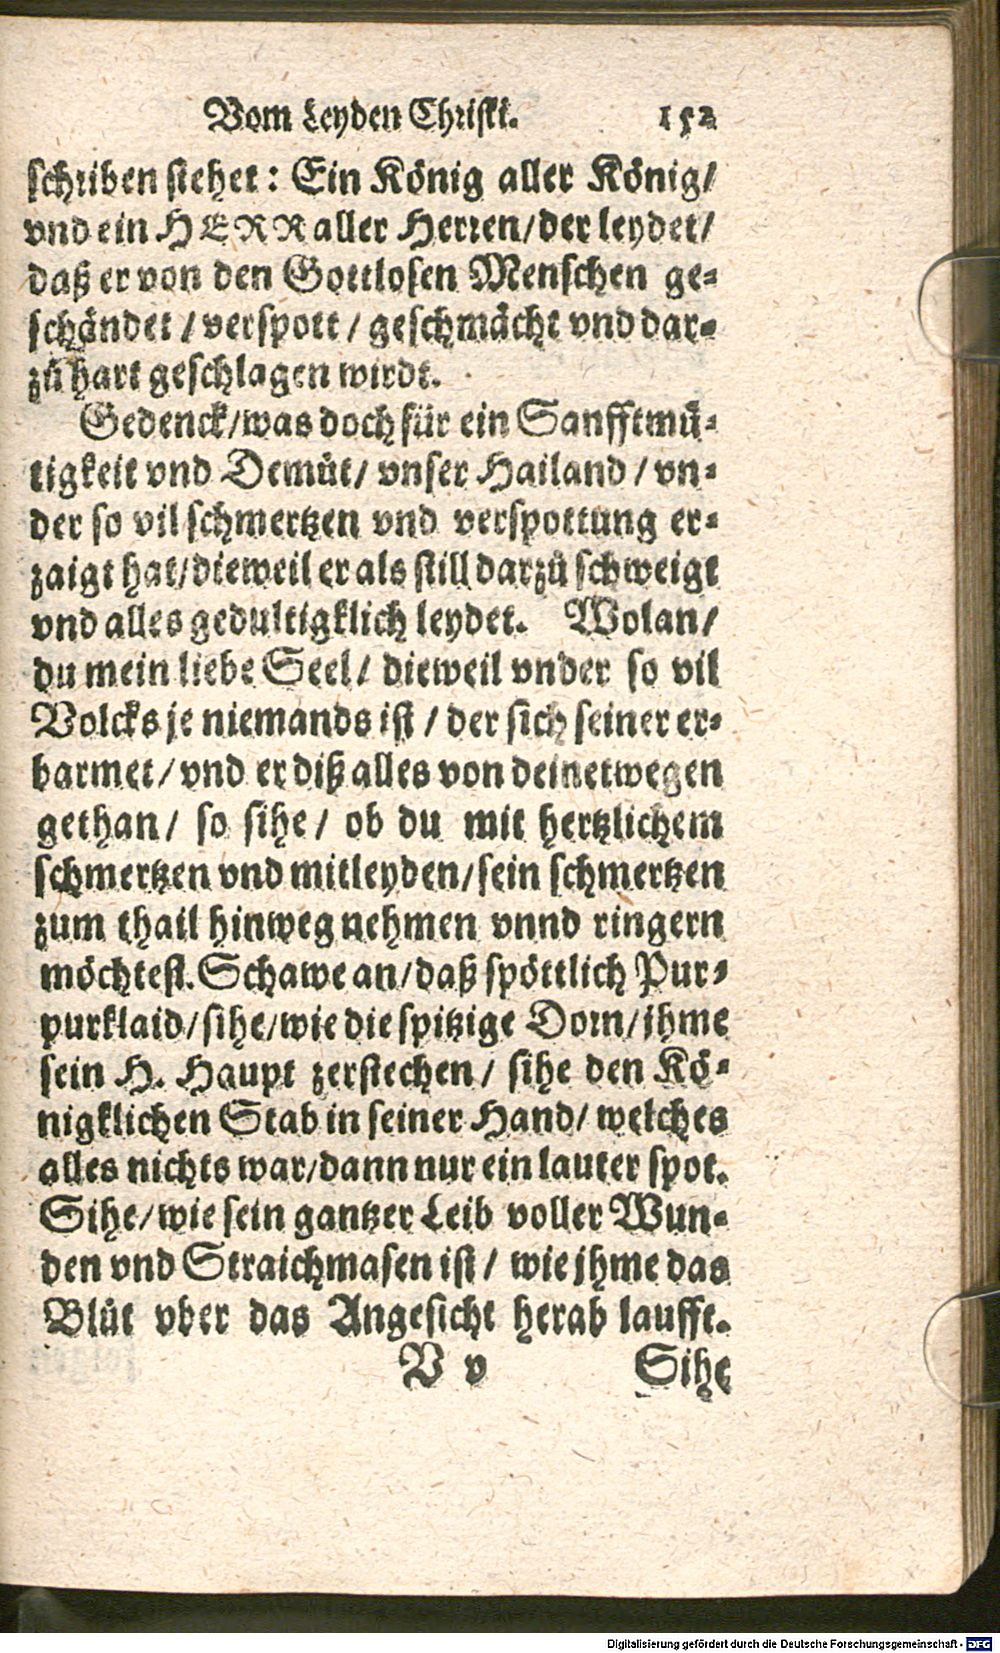 Vom Leyden Christi. 152
schriben stehet: Ein König aller König/
vnd ein HERR aller Herren/der leydet/
daß er von den Gottlosen Menschen ge-
schändet / verspott / geschmächt vnd dar-
zů hart geschlagen wirdt.
Gedenck/was doch für ein Sanfftmü-
tigkeit vnd Demůt/ vnser Hailand / vn-
der so vil schmertzen vnd verspottung er-
zaigt hat/dieweil er als still darzů schweigt
vnd alles gedultigklich leydet. Wolan/
du mein liebe Seel/ dieweil vnder so vil
Volcks je niemands ist / der sich seiner er-
barmet/ vnd er diß alles von deinetwegen
gethan/ so sihe/ ob du mit hertzlichem
schmertzen vnd mitleyden/sein schmertzen
zum thail hinweg nehmen vnnd ringern
möchtest. Schawe an/daß spöttlich Pur-
purklaid/sihe/wie die spitzige Dorn/jhme
sein H. Haupt zerstechen/ sihe den Kö-
nigklichen Stab in seiner Hand/ welches
alles nichts war/dann nur ein lauter spot.
Sihe/wie sein gantzer Leib voller Wun-
den vnd Straichmasen ist/ wie jhme das
Blůt vber das Angesicht herab laufft.
V v Sihe
Digitalisierung gefördert durch die Deutsche Forschungsgemeinschaft - DFG